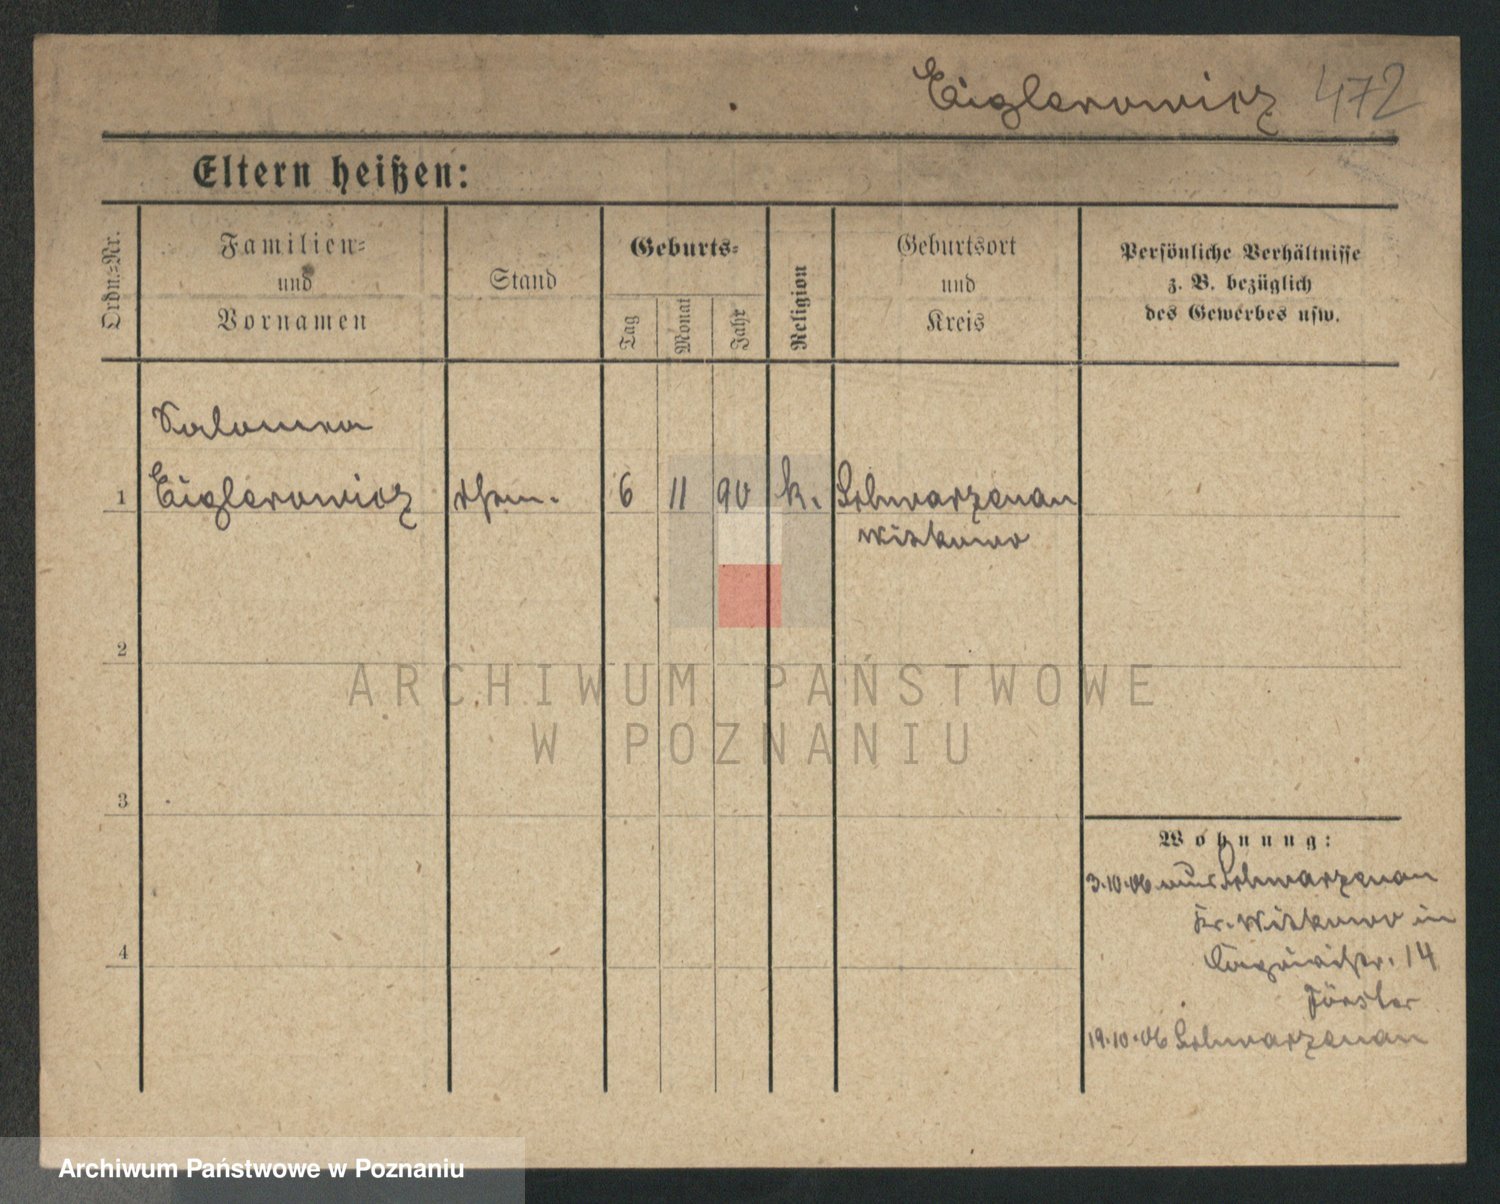 Eiglerowicz 472
Eltern heißen:
Ordn.=Nr.
Familien=
und
Vornamen
Stand
Geburts=
Tag
Monat
Jahr
Religion
Geburtsort
und
Kreis
Persönliche Verhältnisse
z. B. bezüglich
des Gewerbes usw.
Salomea
1 Eiglerowicz 6 11 90 k. Schwarzenau
Witkowo
2
3
4
Wohnung:
3.10.06 aus Schwarzenau
Kr. Witkowo in
14
Förster
19.10.06 Schwarzenau
ARCHIWUM PAŃSTWOWE
W POZNANIU
Archiwum Państwowe w Poznaniu